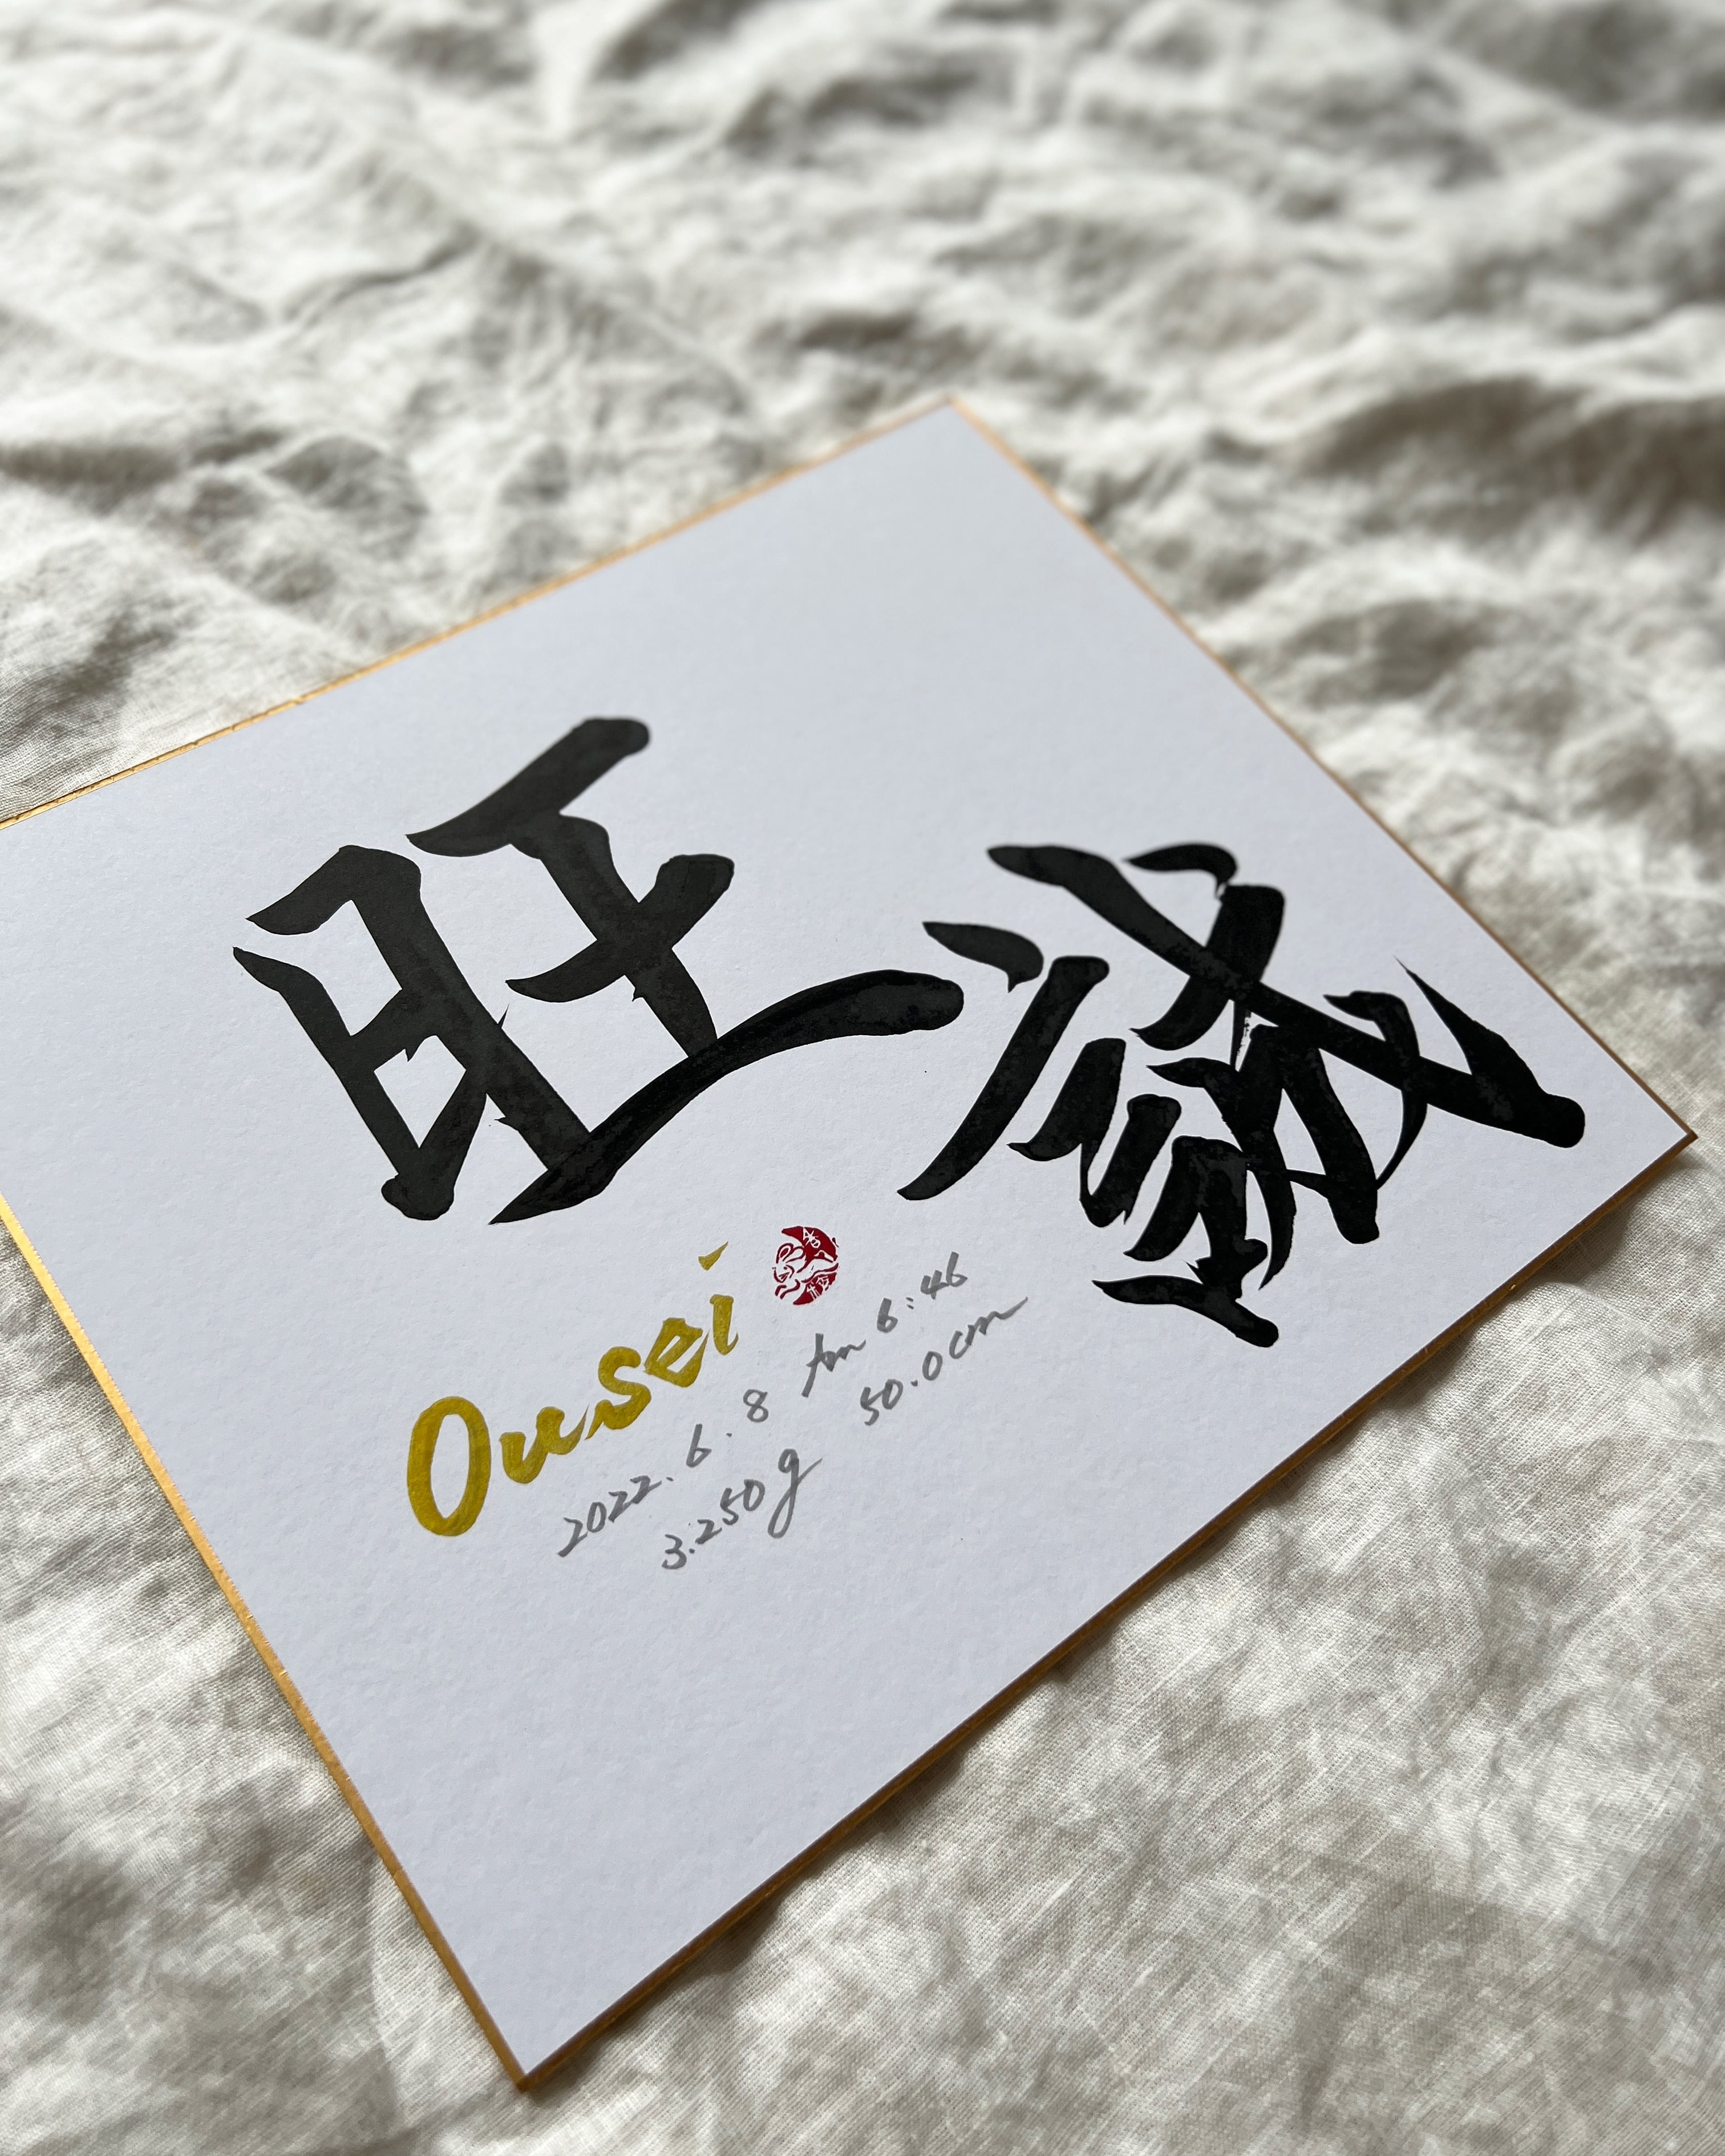 旺誠
Ousei
2022.6.8 Am 6:46
3.250g 50.0cm